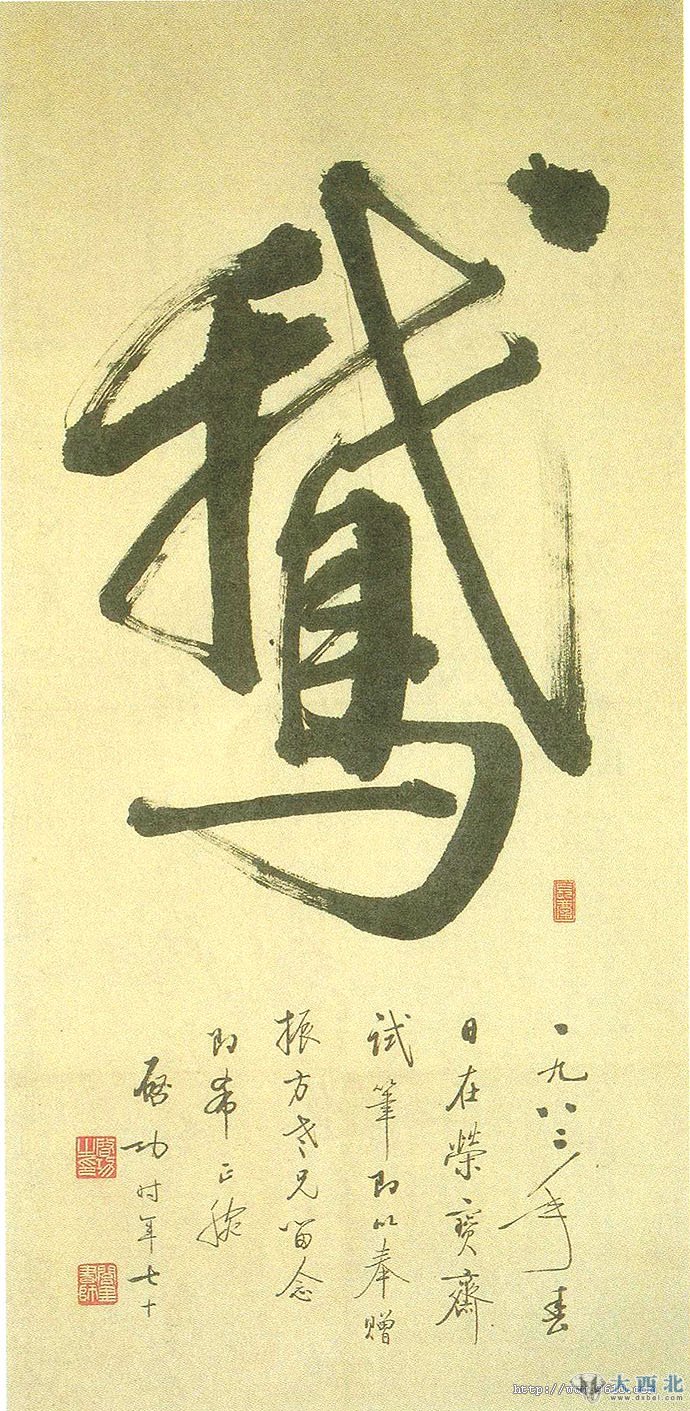 鵞
一九八二年春
日在榮寶齋
試筆即以奉贈
振方老兄留念
即希正腕
啓功時年七十
大西北
www.dxbei.com